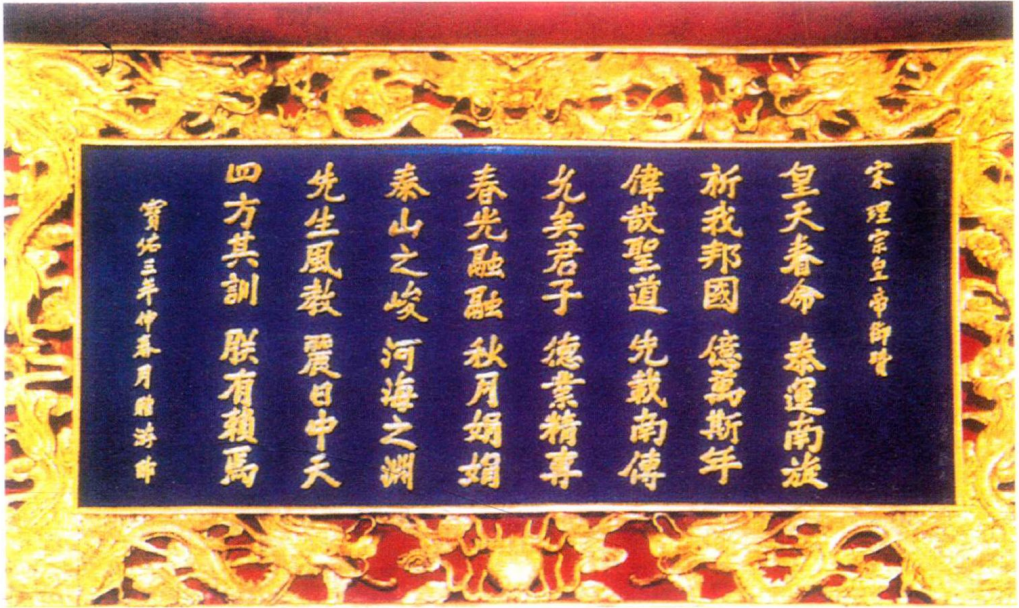 宋理宗皇帝御贊
皇天春命 泰運南旋
祈我邦國 億萬斯年
偉哉聖道 先載南傳
允矣君子 德業精專
春光融融 秋月娟娟
秦山之峻 河海之淵
先生風教 麗日中天
四方其訓 朕有賴焉
寶佑三年仲春月贈游師